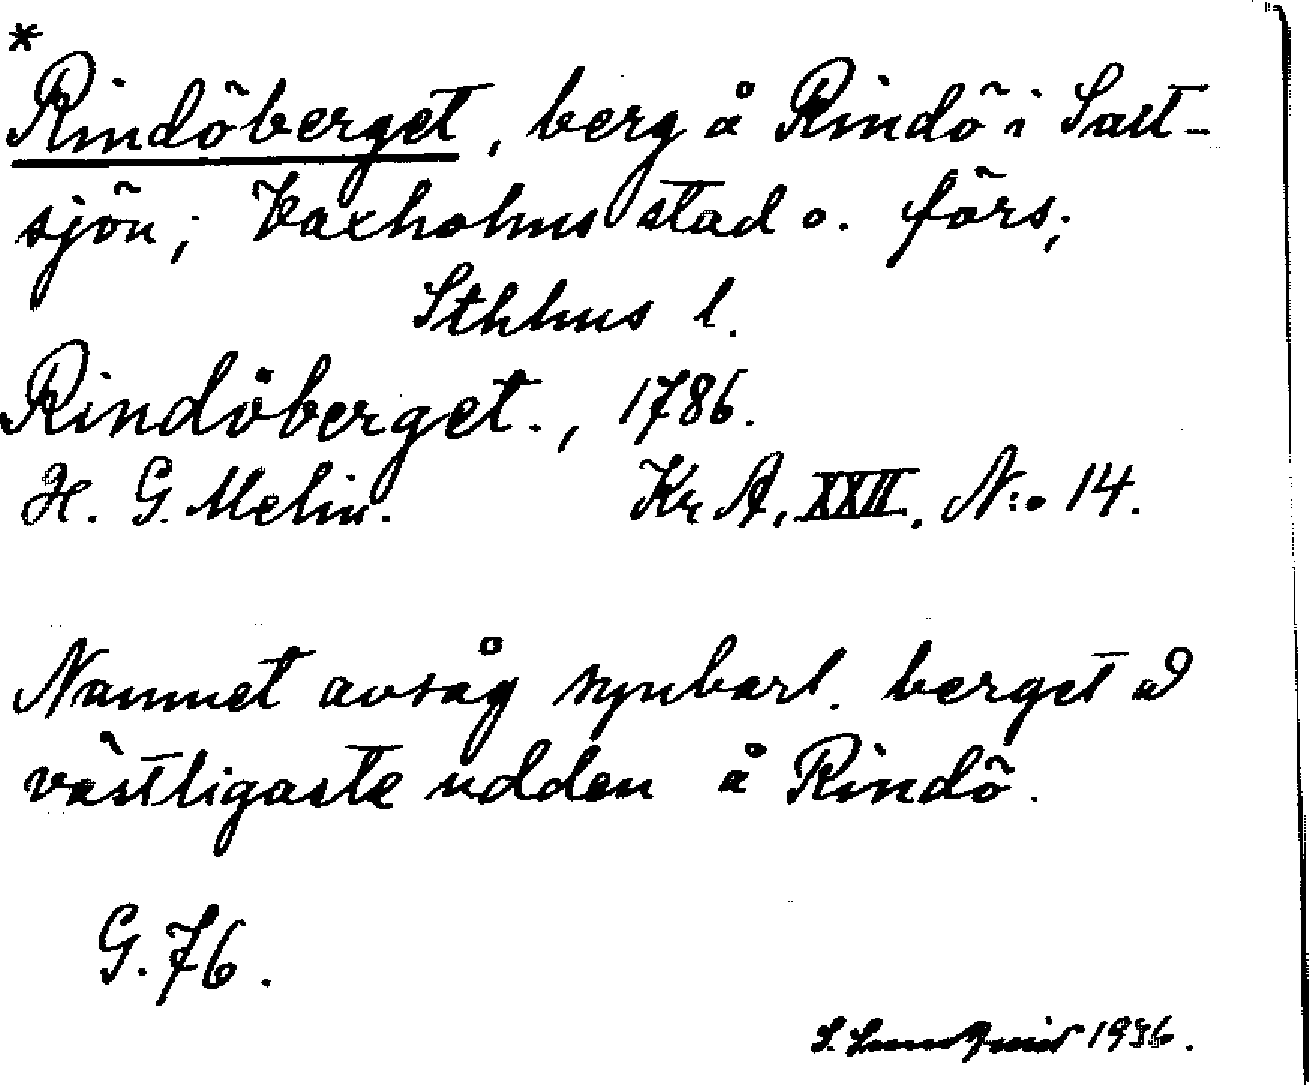 *
Rindöberget, berg å Rindö i Salt-
sjön; Vaxholms stad o. förs;
Sthlms l.
Rindöberget., 1786.
H. G. Melin. Kr A, XXII. N:o 14.
Namnet avsåg synbarl. berget å
västligaste udden å Rindö.
G. 76.
S. 1936.